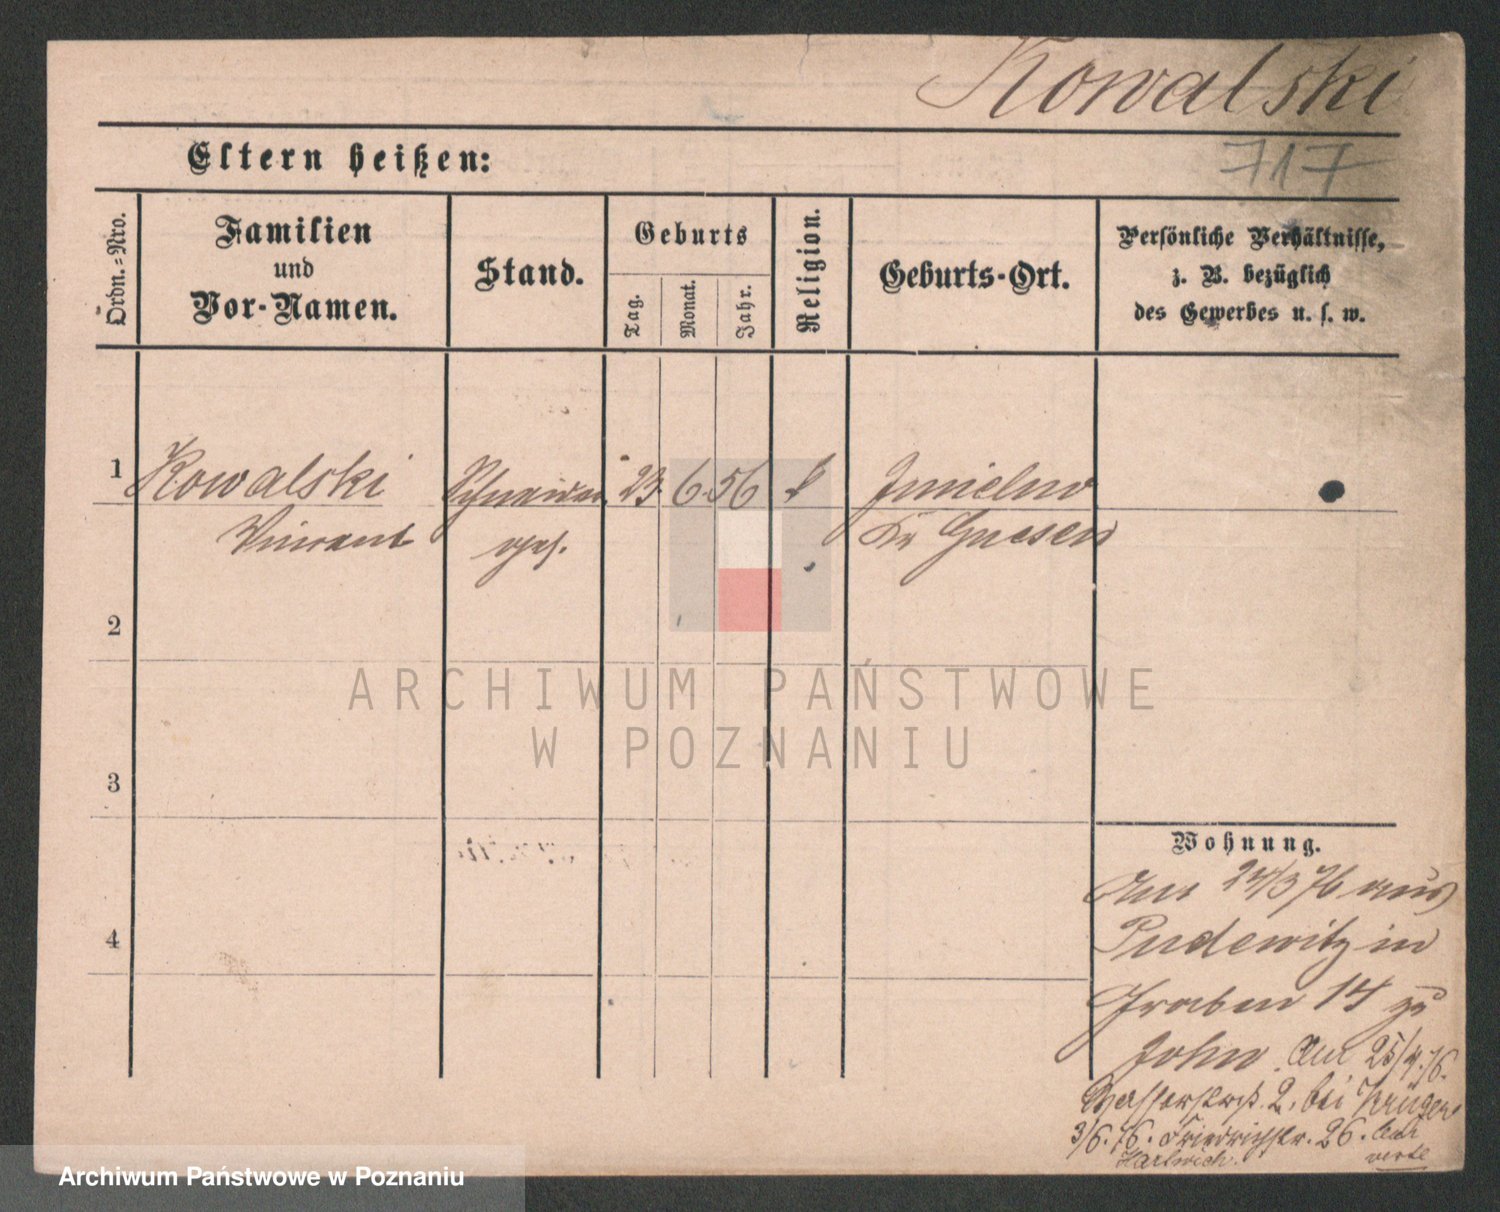 Kowalski
717
Eltern heißen:
Ordn.-Nro.
Familien
und
Vor-Namen.
Stand.
Geburts
Tag.
Monat.
Jahr.
Religion.
Geburts-Ort.
Persönliche Verhältnisse,
z. B. bezüglich
des Gewerbes u. s. w.
1 Kowalski Schneider 23. 6. 56 Imielno
Vincent ges. Kr Gnesen
2
3
4
Wohnung.
Am 24/3 76 aus
Pudewitz in
Graben 14 zu
John Am 25/4. 76.
Wasserstraß. 2. bei Krüger
3/6. 76. Friedrichstr. 26.
Hartwich. verte
ARCHIWUM PAŃSTWOWE
W POZNANIU
Archiwum Państwowe w Poznaniu